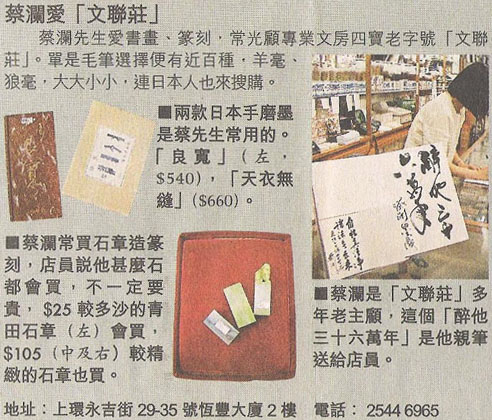 蔡瀾愛「文聯莊」
蔡瀾先生愛書畫、篆刻，常光顧專業文房四寶老字號「文聯
莊」。單是毛筆選擇便有近百種，羊毫、
狼毫，大大小小，連日本人也來搜購。
■兩款日本手磨墨
是蔡先生常用的。
「良寬」（左，
$540），「天衣無
縫」（$660）。
■蔡瀾常買石章造篆
刻，店員說他甚麼石
都會買，不一定要
貴，$25 較多沙的青
田石章（左）會買，
$105（中及右）較精
緻的石章也買。
醉他三十
六萬年
■蔡瀾是「文聯莊」多
年老主顧，這個「醉他
三十六萬年」是他親筆
送給店員。
地址：上環永吉街 29-35 號恆豐大廈 2 樓 電話：2544 6965